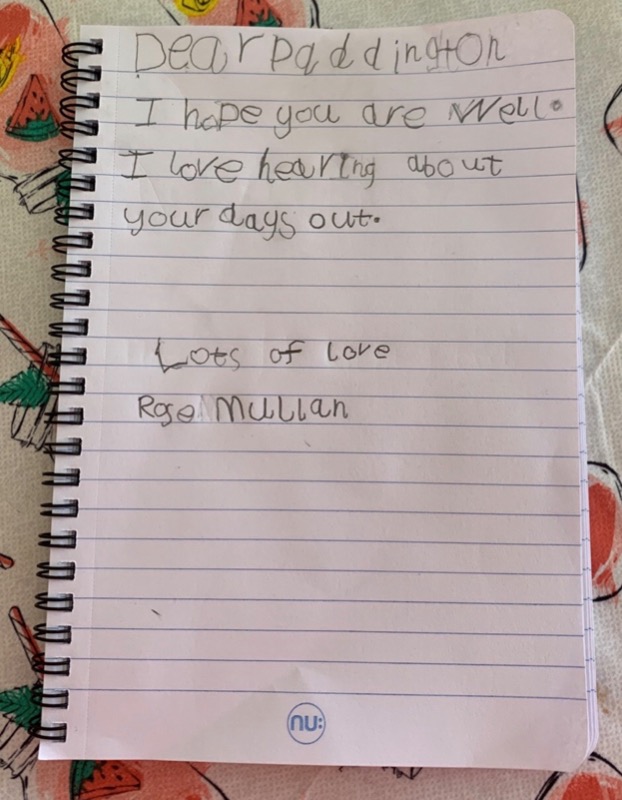 Dear Paddington
I hope you are Well.
I love hearing about
your days out.
Lots of love
Rose Mullan
nu: